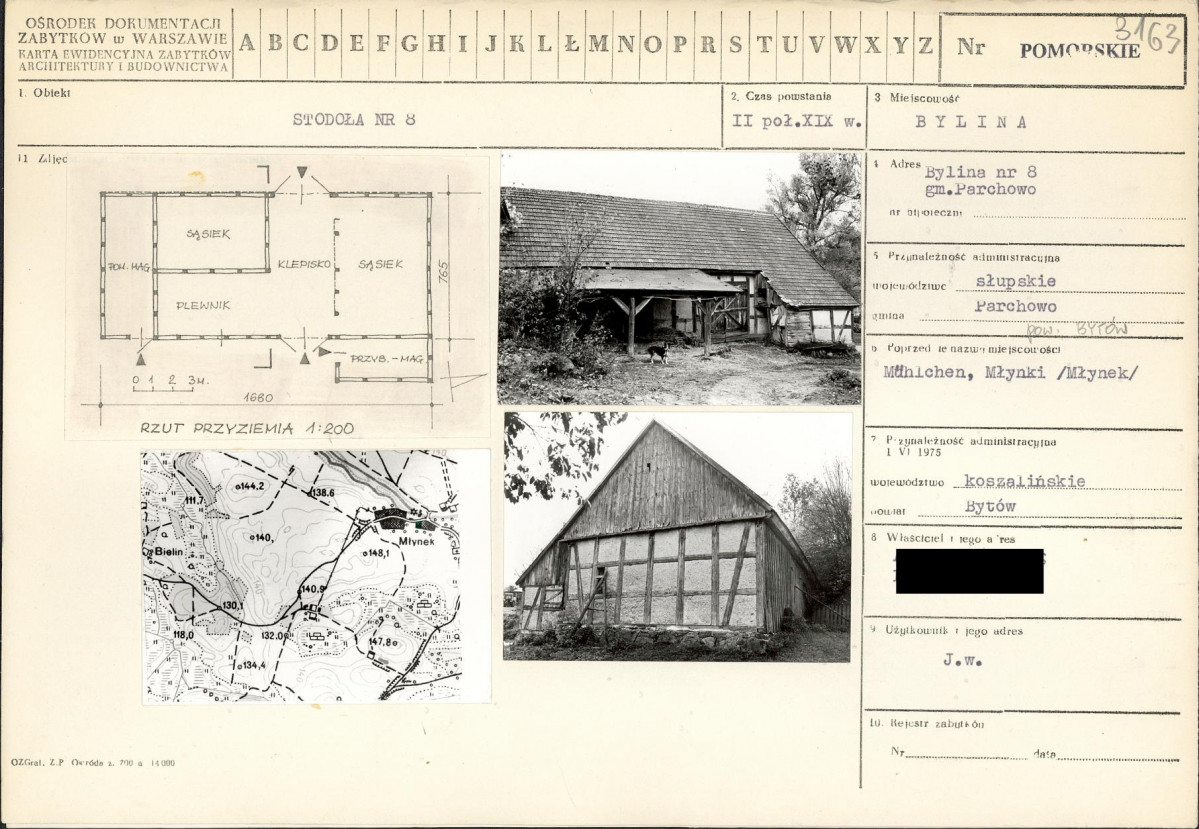 OŚRODEK DOKUMENTACJI
ZABYTKÓW w WARSZAWIE
KARTA EWIDENCYJNA ZABYTKÓW
ARCHITEKTURY I BUDOWNICTWA
A B C D E F G H I J K L Ł M N O P R S T U V W X Y Z
Nr POMORSKIE
3163
1. Obiekt
STODOŁA NR 8
2. Czas powstania
II poł.XIX w.
3 Miejscowość
BYLINA
11 Zdjęc
SĄSIEK
POM. MAG
KLEPISKO
SĄSIEK
PLEWNIK
765
PRZYB. - MAG.
0 1 2 3 M.
1680
RZUT PRZYZIEMIA 1:200
144.2
138.6
111,7
140,
Młynek
Bielin
148,1
140.9
130,1
118,0
132.0
147,8
134,4
4 Adres
Bylina nr 8
gm.Parchowo
5 Przynależność administracyjna
województwo słupskie
gmina Parchowo
pow. BYTÓW
6 Poprzednie nazwy miejscowości
Mühlchen, Młynki /Młynek/
7. Przynależność administracyjna
1 VI 1975
województwo koszalińskie
powiat Bytów
8 Właściciel i jego adres
9 Użytkownik i jego adres
J.w.
10. Rejestr zabytków
Nr data
OZGraf, Z.P Ostróda z. 700 n 14 000